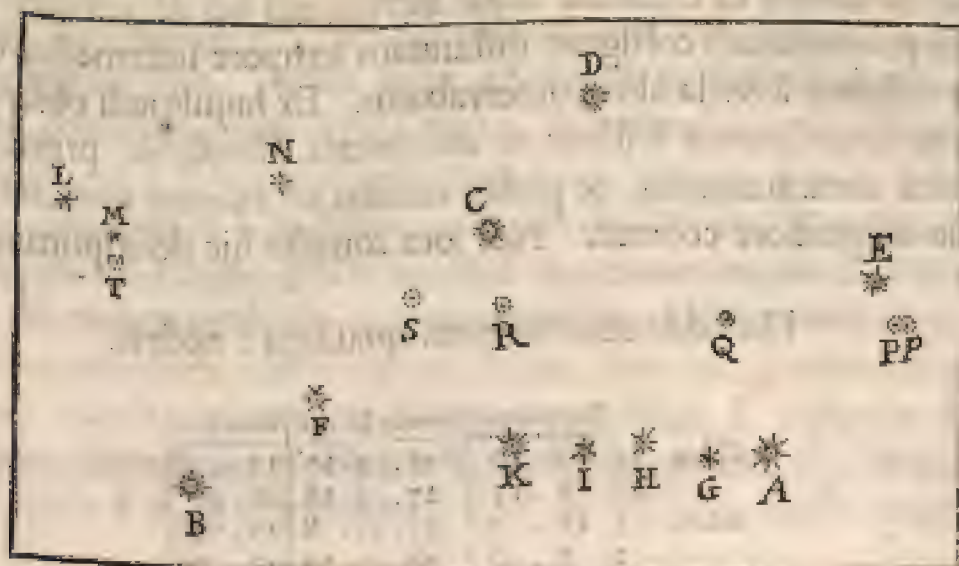 D
N
L
M
C
T
E
S
R
Q
PP
F
K
I
H
G
A
B